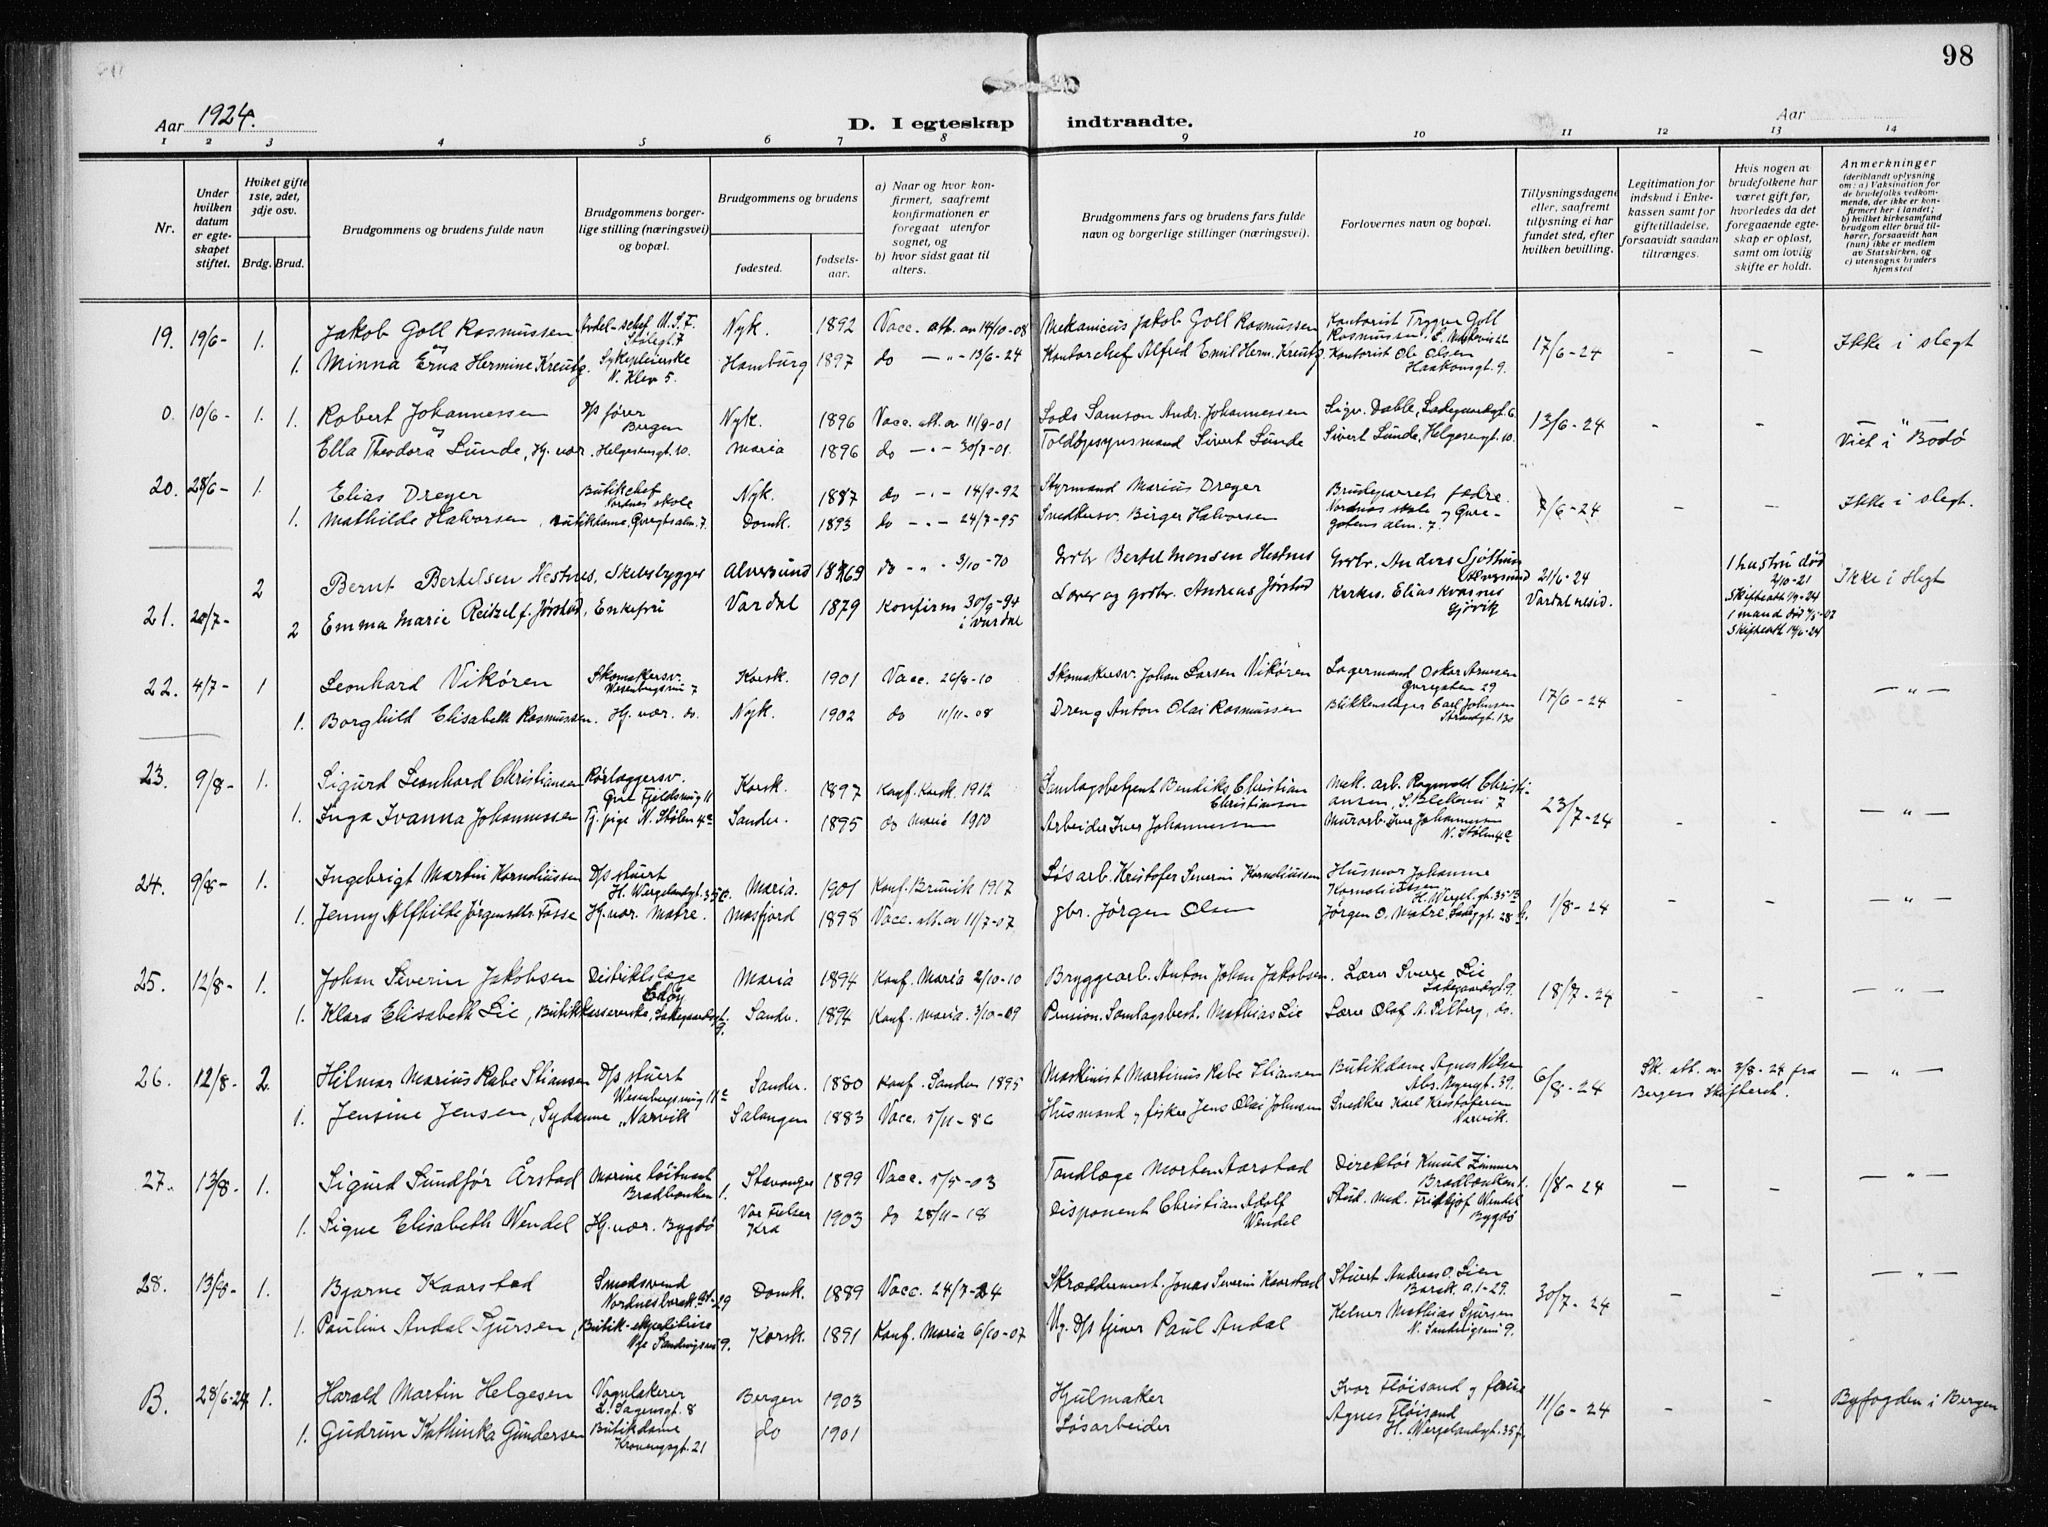 98
Aar 1924.
D. I egteskap indtraadte.
Aar
1 2 3 4 5 6 7 8 9 10 11 12 13 14
Nr.
Under hvilken datum er egteskapet stiftet.
Hviket gifte 1ste, 2det, 3dje osv.
Brdg. Brud.
Brudgommens og brudens fulde navn
Brudgommens borgerlige stilling (næringsvei) og bopæl.
Brudgommens og brudens
fødested.
fødselsaar.
a) Naar og hvor konfirmert, saafremt konfirmationen er foregaat utenfor sognet, og
b) hvor sidst gaat til alters.
Brudgommens fars og brudens fars fulde navn og borgerlige stillinger (næringsvei).
Forlovernes navn og bopæl.
Tillysningsdagene eller, saafremt tillysning ei har fundet sted, efter hvilken bevilling.
Legitimation for indskud i Enkekassen samt for giftetilladelse, forsaavidt saadan tiltrænges.
Hvis nogen av brudefolkene har været gift før, hvorledes da det foregaaende egteskap er opløst, samt om lovlig skifte er holdt.
Anmerkninger
(deriblandt oplysning om: a) Vaksination for de brudefolks vedkommende, der ikke er konfirmert her i landet; b) hvilket kirkesamfund brudgom eller brud tilhører, forsaavidt han (hun) ikke er medlem av Statskirken, og c) utensogns bruders hjemsted
19. 19/6- 1. Jakob Goll Rasmussen Avdel-schef M.S.F. Nyk. 1892 Vacc. att. av 14/10-08 Mekanicus Jakob Goll Rasmussen Kontorist Trygve Goll Rasmussen 17/6-24 - - Ikke i slegt
og
1. Minna Erna Hermine Kreutz. Sykepleierske N. Klev 5. Hamburg 1897 do -"- 13/6-24 Kontorchef Alfred Emil Herm. Kreutz. Kontorist Ole Olsen Haakonsgt. 9.
0. 10/6- 1. 1. Robert Johannessen D/s fører Bergen Nyk. 1896 Vacc. att. av 11/9-01 Lods Samson Andr. Johannessen Sigv. Dahle, Ladegaardsgt 6. 13/6-24 - - -"-
og
Ella Theodora Lunde, Hj. vær. Helgesensgt. 10. Maria 1896 do -"- 30/7-01. Toldopsynsmand Sivert Lunde Sivert Lunde, Helgesengt. 10. Viet i Bodö
20. 28/6- 1. Elias Dreyer Butikchef Nordnes skole Nyk. 1887 do -"- 14/9-92 Styrmand Marius Dreyer Brudeparets fædre. Nordnes skole og 7/6-24 - - Ikke i slegt.
1. Mathilde Halvorsen, Butikdame, Domk. 1893 do -"- 24/7-95 Snedkersv. Birger Halvorsen
2 Bernt Bertelsen Hestnes, Skibsbygger Alversund 1869 do -"- 3/10-70 Grbr Bertel Monsen Hestnes Grbr. Anders 21/6-24 1 hustru død 2/10-21 Ikke i slegt
21. 20/7- 2 Emma Marie Reitzel f. Jørstad, Enkefru Vardal 1879 Konfirm 30/9-94 i Vardal Lærer og grdbr. Andreas Jørstad Kirkes. Elias Kvasnes Gjøvik Vardal resid. 1 mand død 7/5-07
22. 4/7- 1 Leonhard Vikören Skomakersv. Korsk. 1901 Vacc. 26/8-10 Skomakersv. Johan Larsen Vikören Lagermand Oskar Arnesen 29 17/6-24 - - -"-
1. Borghild Elisabeth Rasmussen. Hj. vær. do. Nyk. 1902 do 11/11-08 Dreng Anton Olai Rasmussen Blikkenslager Carl Johnsen Strandgt. 130
23. 9/8- 1. Sigurd Leonhard Christiansen Rörlæggersv. Korsk. 1897 Konf. Korsk. 1912 Samlagsbetjent Bendiks Christian Christiansen Mek. arb. Ragnvald Christiansen, 7 23/7-24 - - -"-
1. Inga Ivanna Johannessen Tj. pige N. Stølen 4c Sandv. 1895 do Maria 1910 Arbeider Iver Johannessen Murarb. Iver Johannessen N. Stølen 4c
24. 9/8- 1. Ingebrigt Martin Korneliussen D/s stuert H. Wergelandsgt. Maria. 1901 Konf. Bruvik 1917 Løsarb. Kristofer Severin Korneliussen Husmor Johanne Korneliussen H. Wergel. gt. 35 B 1/8-24 - - -"-
1. Jenny Alfhilde Jørgensdtr. Fosse Hj. vær. Matre. Masfjord 1898 Vacc. att. av 11/7-07 gbr. Jörgen Olsen Jørgen O. Matre,
25. 12/8- 1. Johan Severin Jakobsen Distriktslæge Edöy Maria 1894 Konf. Maria 2/10-10 Bryggearb. Anton Johan Jakobsen. Lærer Sverre Lie Ladegaardsgt. 9. 18/7-24 - - -"-
1. Klara Elisabeth Lie, Butikkassererske, Ladegaardsgt. 9. Sandv. 1894 Konf. Maria. 3/10-09 Pension. Samlagsbest. Mathias Lie Lærer Olaf A. Selberg, do.
26. 12/8- 2. Hilmar Marius Rabe Stiansen D/s stuert Sandv. 1880 Konf. Sandv 1895 Maskinist Martinus Rabe Stiansen Butikdame Agnes Nilsen 39. 6/8-24 Sk. att. av 7/8-24 fra Bergens Skifteret. -"-
1. Jensine Jensen, Sydame, Narvik Salangen 1883 Vacc. 5/11-86 Husmand og fisker Jens Olai Johnsen Snedker Karl Kristofersen Narvik.
27. 13/8- 1. Sigurd Sundför Årstad Marine löitnant Bradbænken 1. Stavanger 1899 Vacc. 5/5-03 Tandlæge Morten Aarstad Direktör Knud Zimmer Bradbænken 1. 1/8-24 - - -"-
1. Signe Elisabeth Wendel Hj. vær. Bygdö Vor Frelser Kra 1903 do 28/11-18 Disponent Christian Adolf Wendel Stud. Med. Fridtjof Wendel Bygdö
28. 13/8- 1. Bjarne Kaarstad Smedsvend Domk. 1889 Vacc. 24/7- Skræddermest. Jonas Severin Kaarstad Stuert Andreas O. Lien Barsk. a. 1-29. 30/7-24 - - -"-
1. Pauline Andal Sjursen, Butik-ekspeditrise Nye Sandvigsvei 9. Korsk. 1891 Konf. Maria 6/10-07 Ug. D/s tjener Paul Andal Kelner Mathias Sjursen N. Sandvigsvei 9.
B. 28/6-24 1. Harald Martin Helgesen Vognlakerer L. Sagensgt. 8 Bergen 1903 Hjulmaker Ivar Fløisand og frue 11/6-24 - - Byfogden i Bergen
1. Gudrun Kathinka Gundersen Butikdame 21 do 1901 Løsarbeider Agnes Fløisand H. Wergelandsgt. 35